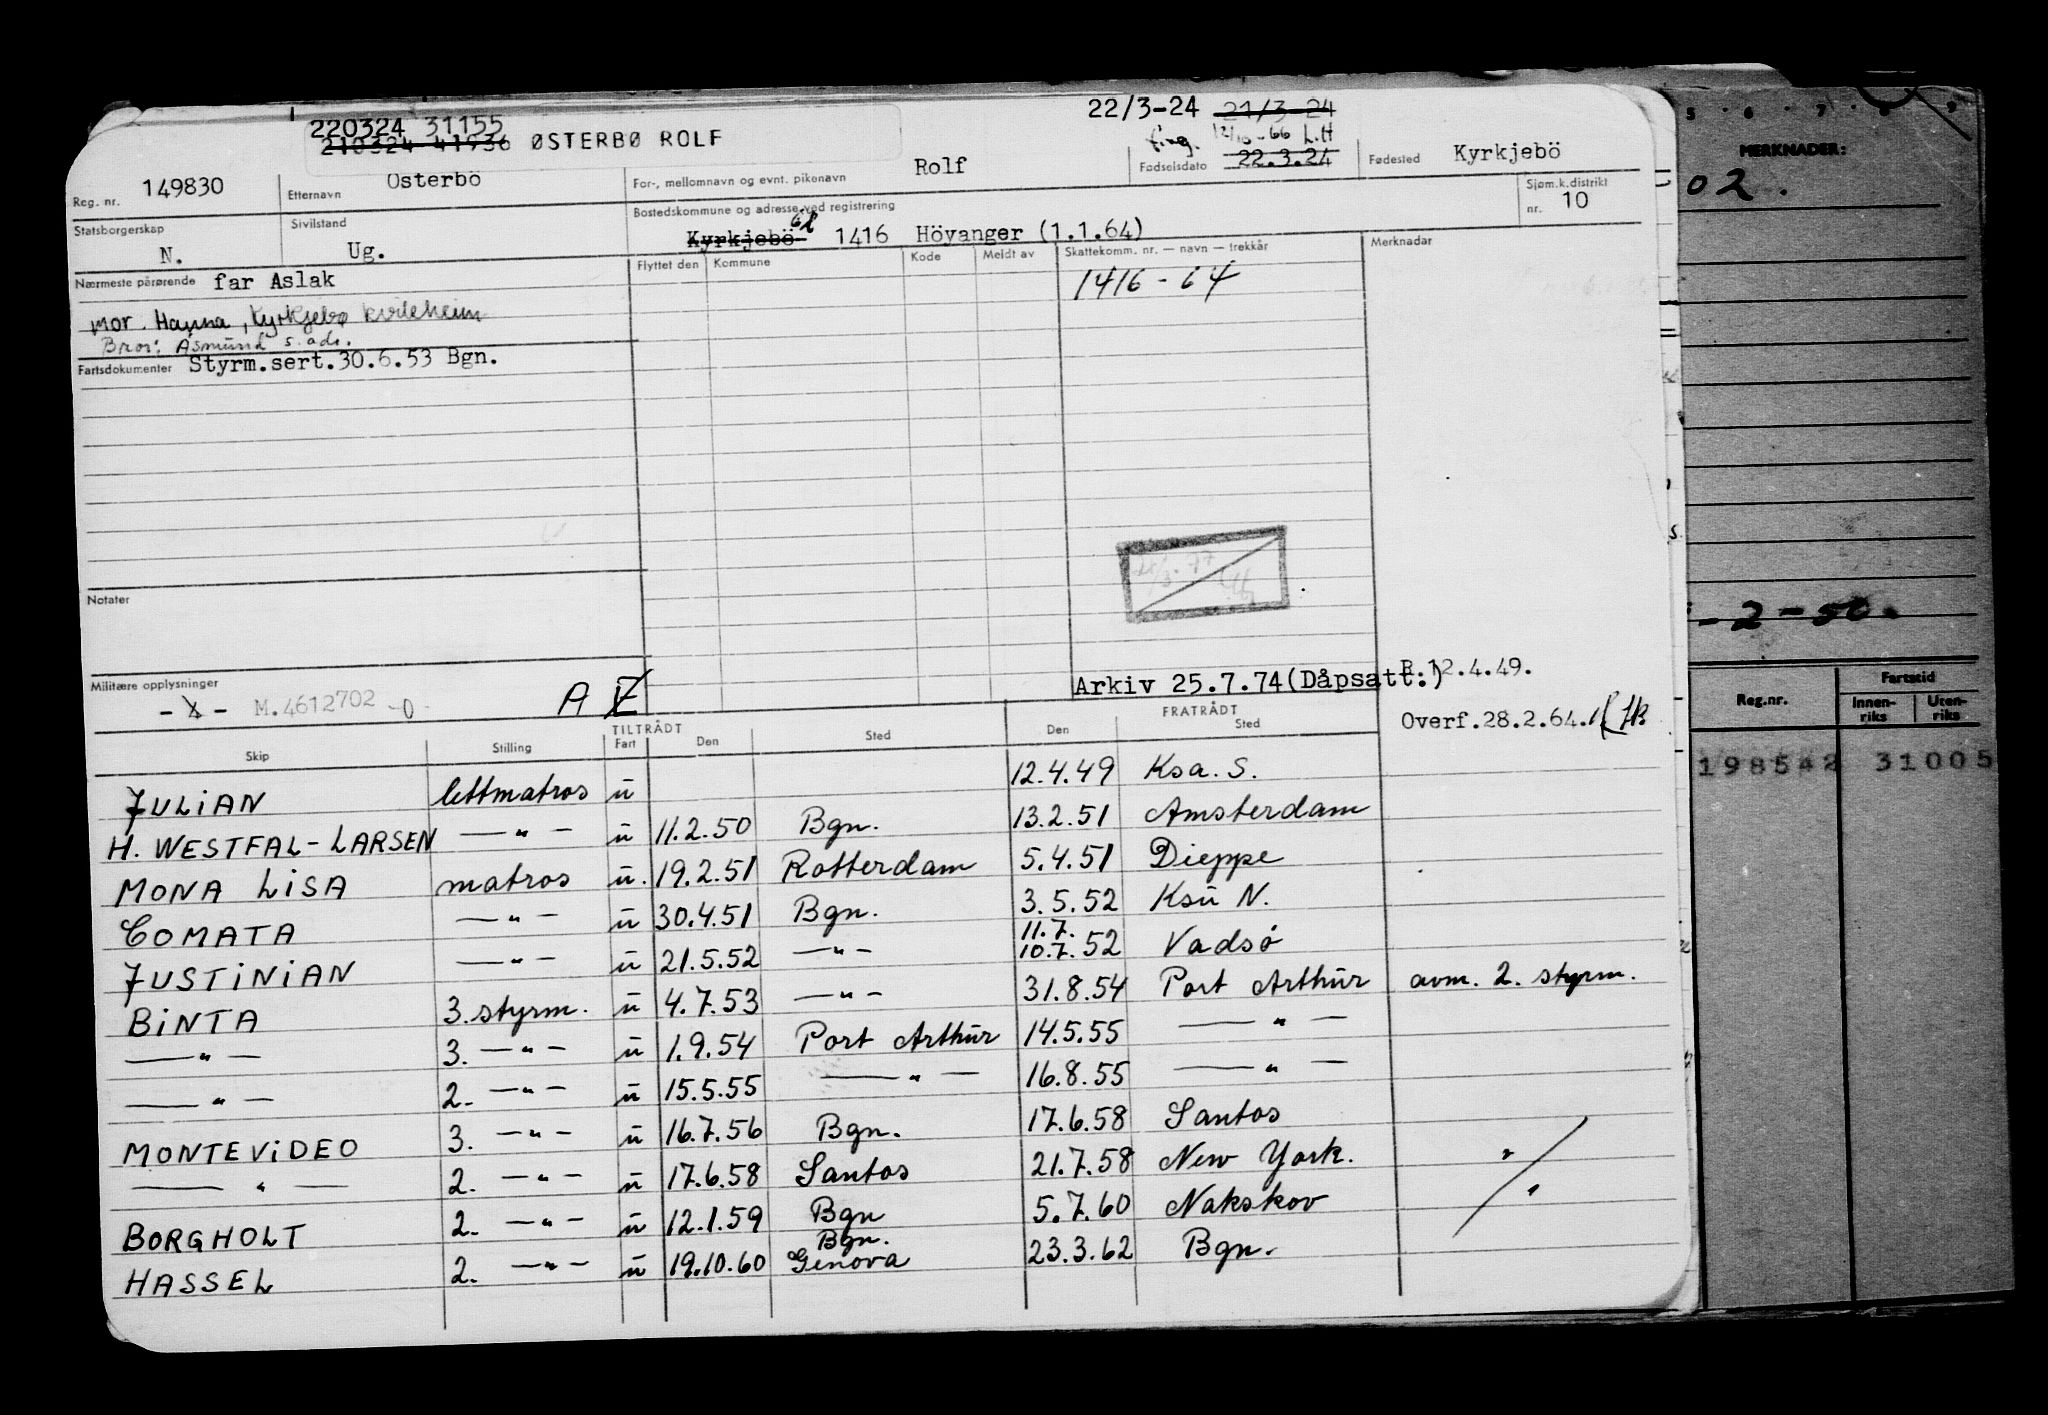 220324 31155
210324 41936 ØSTERBØ ROLF
22/3-24 21/3-24
12/10-66 L.H
Reg. nr. 149830
Etternavn Østerbö
For-, mellomnavn og evnt. pikenavn Rolf
Fødselsdato 22.3.24
Fødested Kyrkjebö
Statsborgerskap N.
Sivilstand Ug.
Bostedskommune og adresse ved registrering
Kyrkjebö 1416 Höyanger (1.1.64)
Sjøm.k.distrikt nr. 10
Nærmeste pårørende far Aslak
mor. Hanna, Kyrkjebø kvileheim
Bror: Åsmund s. adr.
Fartsdokumenter Styrm.sert.30.6.53 Bgn.
Flyttet den Kommune Kode Meldt av Skattekomm. nr. — navn — trekkår Merknadar
1416 - 64
Notater
Militære opplysninger
- 4 - M.4612702 -0-
A E
Arkiv 25.7.74(Dåpsatt:)
R.12.4.49.
Overf.28.2.64.
TILTRÅDT FRATRÅDT
Skip Stilling Fart Den Sted Den Sted
JULIAN lettmatros u 12.4.49 Ksa. S.
H. WESTFAL-LARSEN — " — u 11.2.50 Bgn. 13.2.51 Amsterdam
MONA LISA matros u. 19.2.51 Rotterdam 5.4.51 Dieppe
COMATA — " — u 30.4.51 Bgn. 3.5.52 Ksu N.
11.7.
JUSTINIAN — " — u 21.5.52 — " — 10.7.52 Vadsö
BINTA 3. styrm. u 4.7.53 — " — 31.8.54 Port Arthur avm. 2. styrm.
— " — 3. — " — u 1.9.54 Port Arthur 14.5.55 — " —
— " — 2. — " — u 15.5.55 — " — 16.8.55 — " —
MONTEVIDEO 3. — " — u 16.7.56 Bgn. 17.6.58 Santos
— " — 2. — " — u 17.6.58 Santos 21.7.58 New York.
BORGHOLT 2. — " — u 12.1.59 Bgn 5.7.60 Nakskov
Bgn.
HASSEL 2. — " — u 19.10.60 Genova 23.3.62 Bgn.
5 · 6 · 7 · 8 · 9
MERKNADER:
02.
-2-50.
Reg.nr. Fartstid
Innen-riks Uten-riks
198542 31005